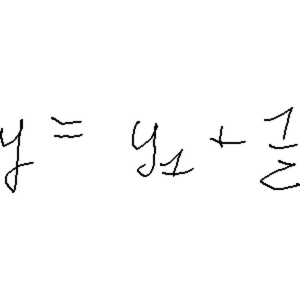 y = y₁ + 1/z